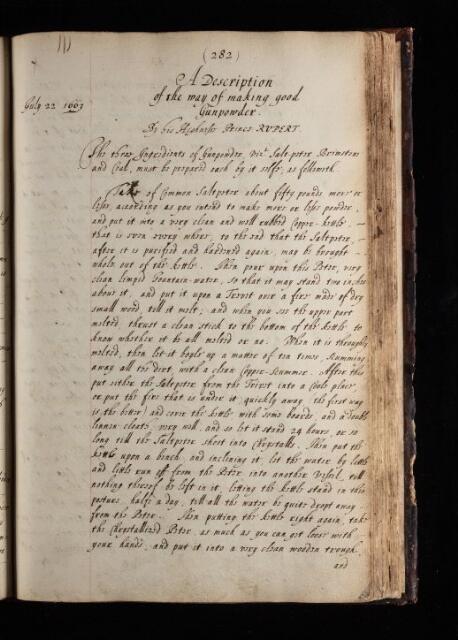 (282)
July 22 1663
A Description
of the way of making good
Gunpowder.
By his Highness Prince RUPERT.
The three Ingredients of Gunpowder, viz.t Salt-peter Brimstone
and Coal, must be prepared each by it selfe, as followeth.
Take of Common Saltpeter about fifty pounds more or
lesse, according as you intend to make more or lesse powder,
and put it into a very clean and well rubbed Copper-kettle,
that is even every where, to the end that the Saltpeter,
after it is purified and hardened again, may be brought
whole out of the kettle. Then pour upon this Peter, very
clean limpid Fountain-water, so that it may stand two inches
about it, and put it upon a Trevit over a fire made of dry
small wood, till it melt; and when you see the upper part
melted, thrust a clean stick to the bottom of the kettle to
know whether it be all melted or no. When it is throughly
melted, then let it boyle up a matter of ten times, skumming
away all the dirt, with a clean Copper-Scummer. After this
put either the Saltpeter from the Trevit into a Coole place,
or put the fire that is under it, quickly away (the first way
is the better) and cover the kettle with some boards, and a double
linnen-cloath, very well, and so let it stand 24 hours, or so
long till the Saltpeter shoot into Chrystalls. Then put the
kettle upon a bench, and inclining it, let the water by little
and little run off from the Peter into another Vessel, till
nothing thereof be left in it, letting the kettle stand in this
posture, halfe a day, till all the water be quite dropt away
from the Peter. Then putting the kettle right again, take
the Chrystallised Peter, as much as you can get loose with
your hands, and put it into a very clean wooden trough,
and